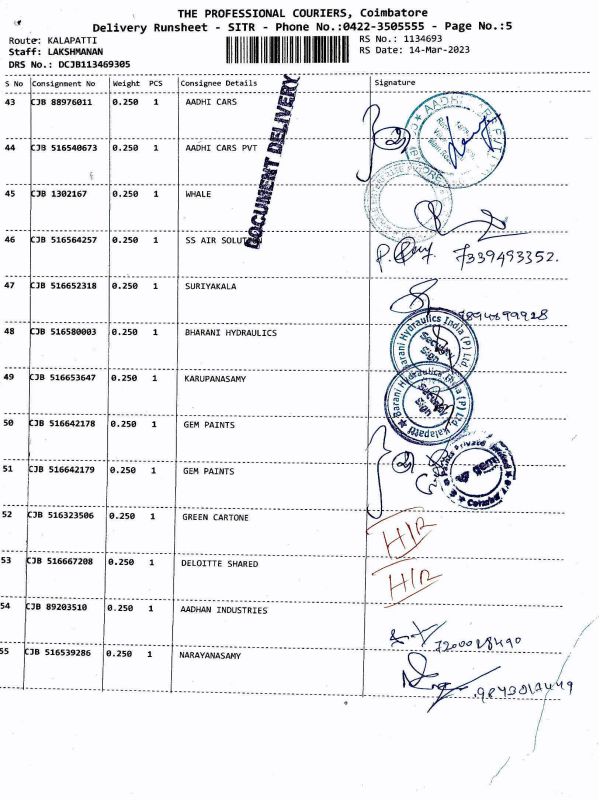 THE PROFESSIONAL COURIERS, Coimbatore
Delivery Runsheet - SITR - Phone No.:0422-3505555 - Page No.:5
Route: KALAPATTI
RS No.: 1134693
Staff: LAKSHMANAN
RS Date: 14-Mar-2023
DRS No.: DCJB113469305
S No Consignment No Weight PCS Consignee Details Signature
43 CJB 88976011 0.250 1 AADHI CARS
44 CJB 516540673 0.250 1 AADHI CARS PVT
DOCUMENT DELIVERY
45 CJB 1302167 0.250 1 WHALE
46 CJB 516564257 0.250 1 SS AIR
7339493352.
47 CJB 516652318 0.250 1 SURIYAKALA
48 CJB 516580003 0.250 1 BHARANI HYDRAULICS
Barani Hydraulics India (P) Ltd.
Security Sign
49 CJB 516653647 0.250 1 KARUPANASAMY
Barani Hydraulics India (P) Ltd. Kalapatti
Security Sign
50 CJB 516642178 0.250 1 GEM PAINTS
51 CJB 516642179 0.250 1 GEM PAINTS
gem
52 CJB 516323506 0.250 1 GREEN CARTONE
H/R
53 CJB 516667208 0.250 1 DELOITTE SHARED
H/R
54 CJB 89203510 0.250 1 AADHAN INDUSTRIES
55 CJB 516539286 0.250 1 NARAYANASAMY